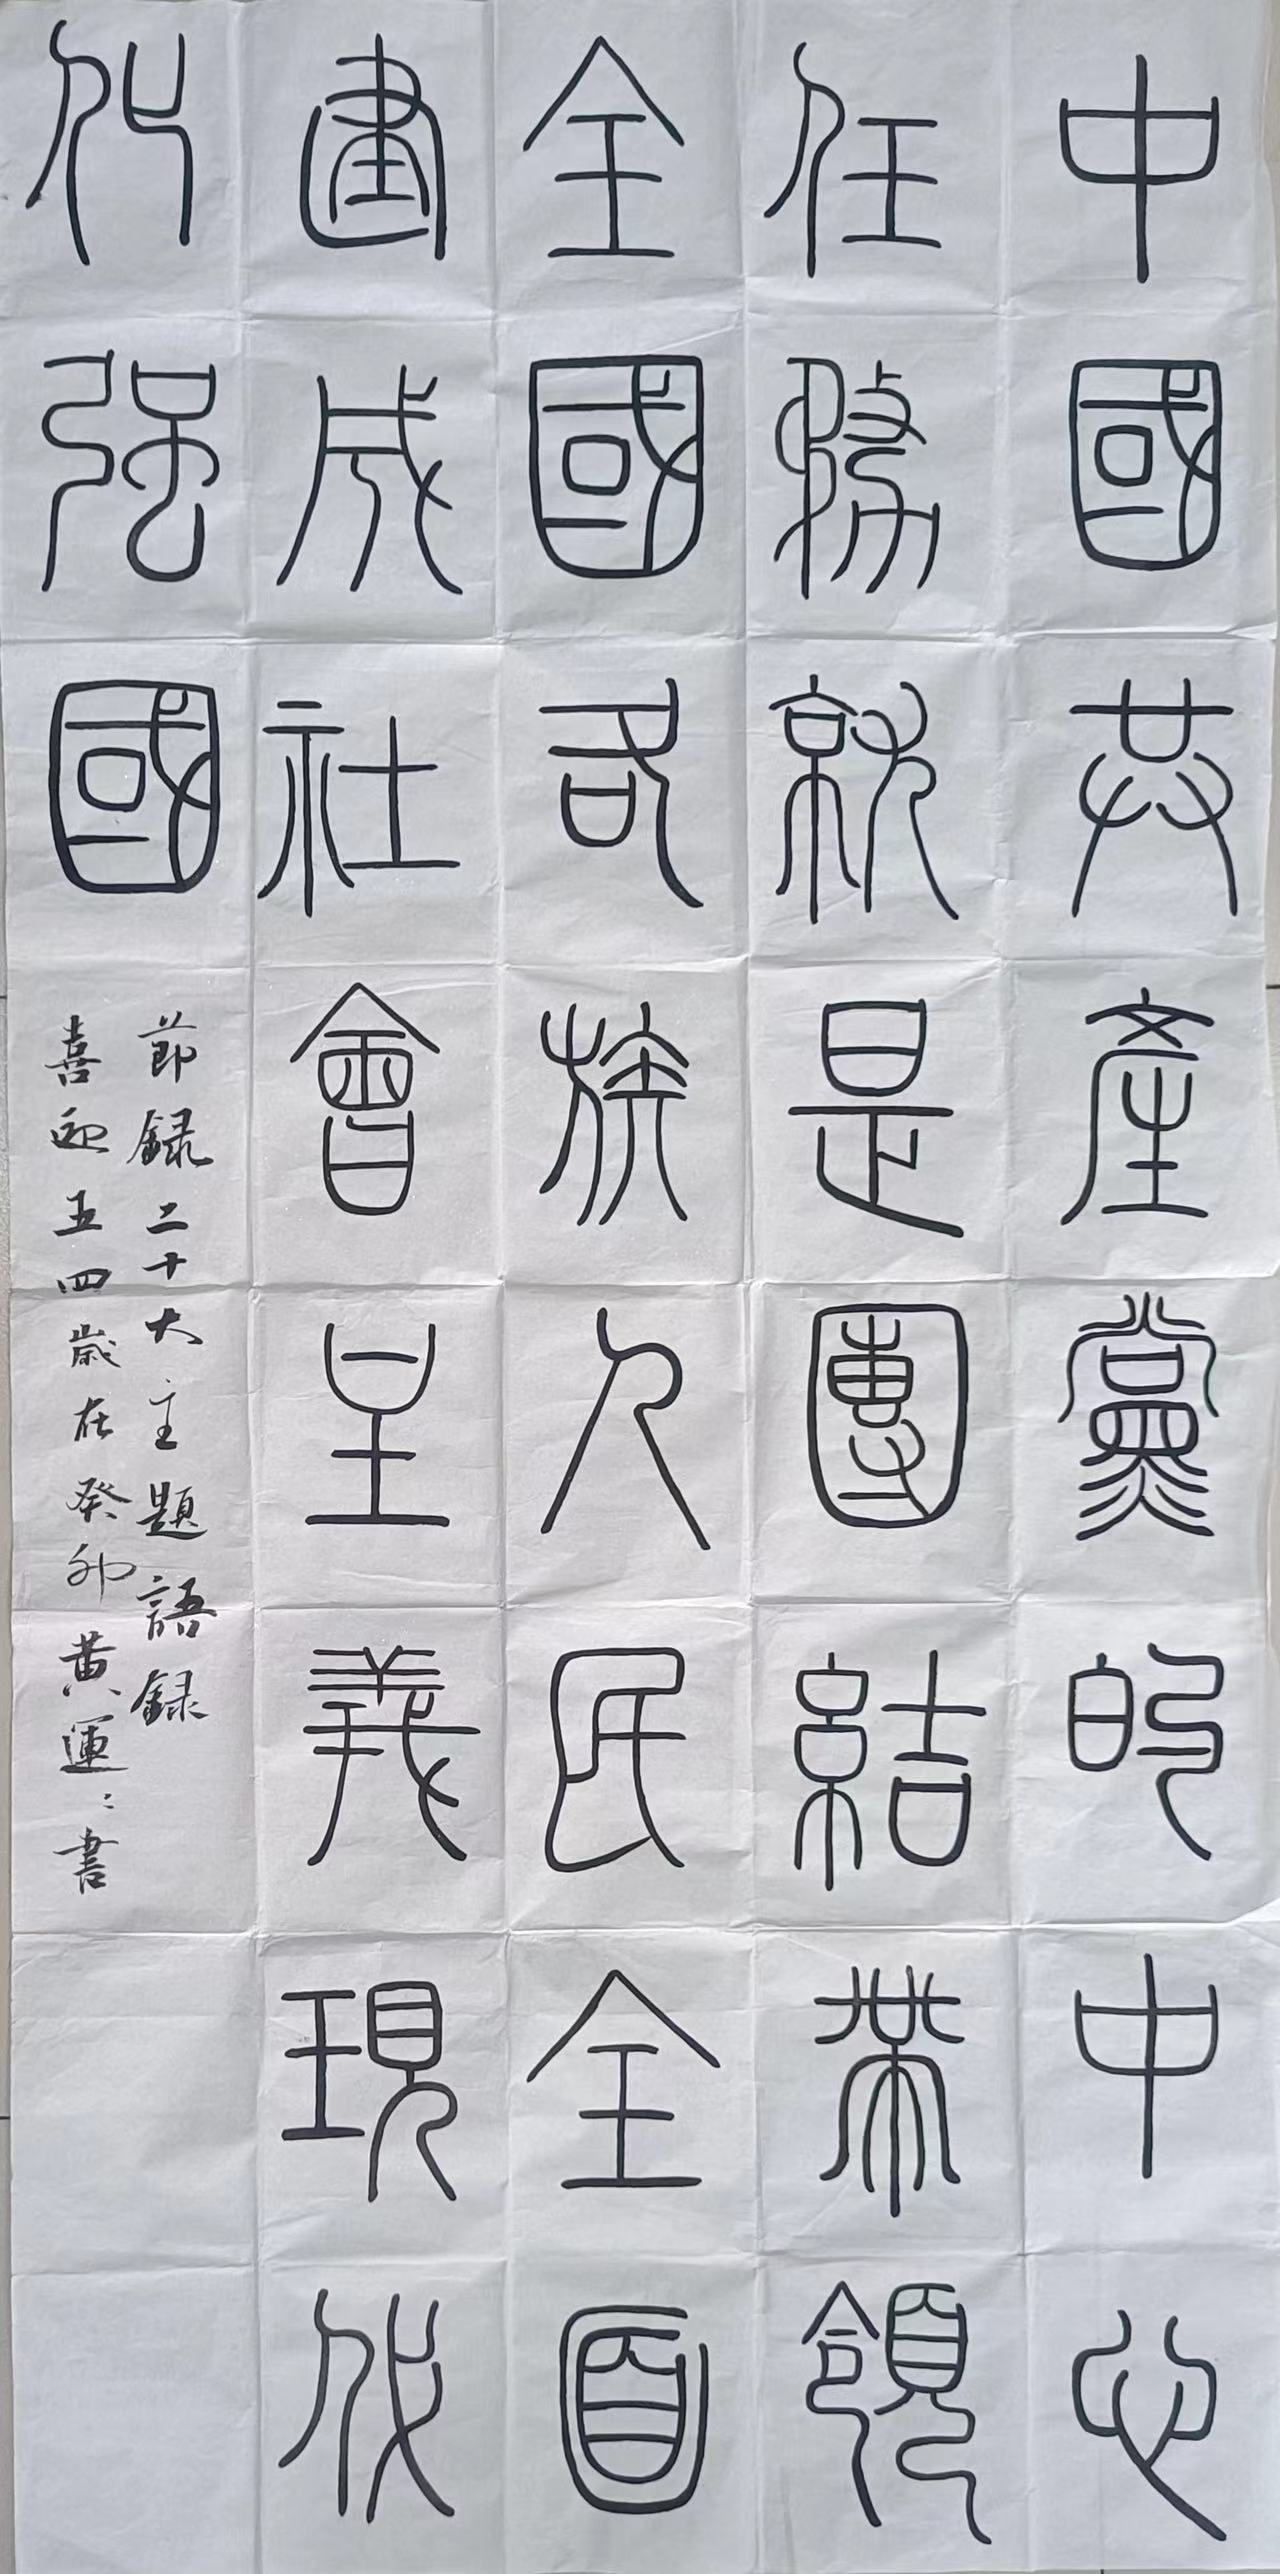 中國共產黨的中心
任務就是團結帶領
全國各族人民全面
建成社會主義現代
化强國
節録二十大主題語録
喜迎五四歲在癸卯黄運〻書